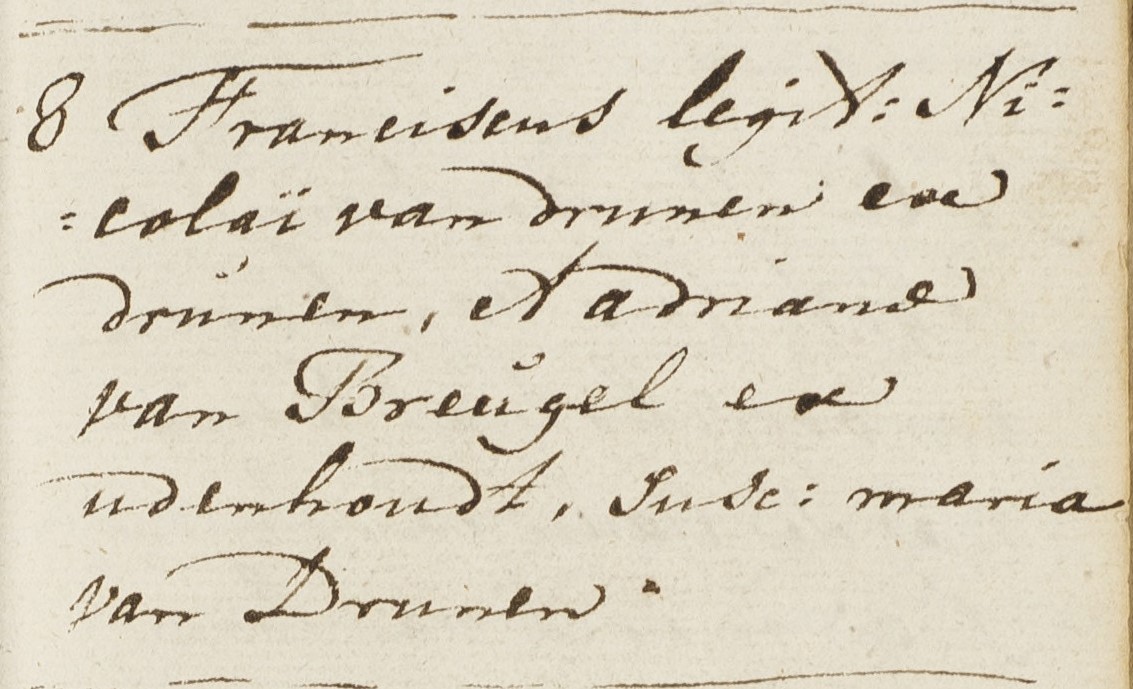 8 Franciscus legit: Ni=
=colaï van drunen ex
drŭnen, et adrianæ
van Breŭgel ex
udenhoudt, Susc: maria
van Drunen.